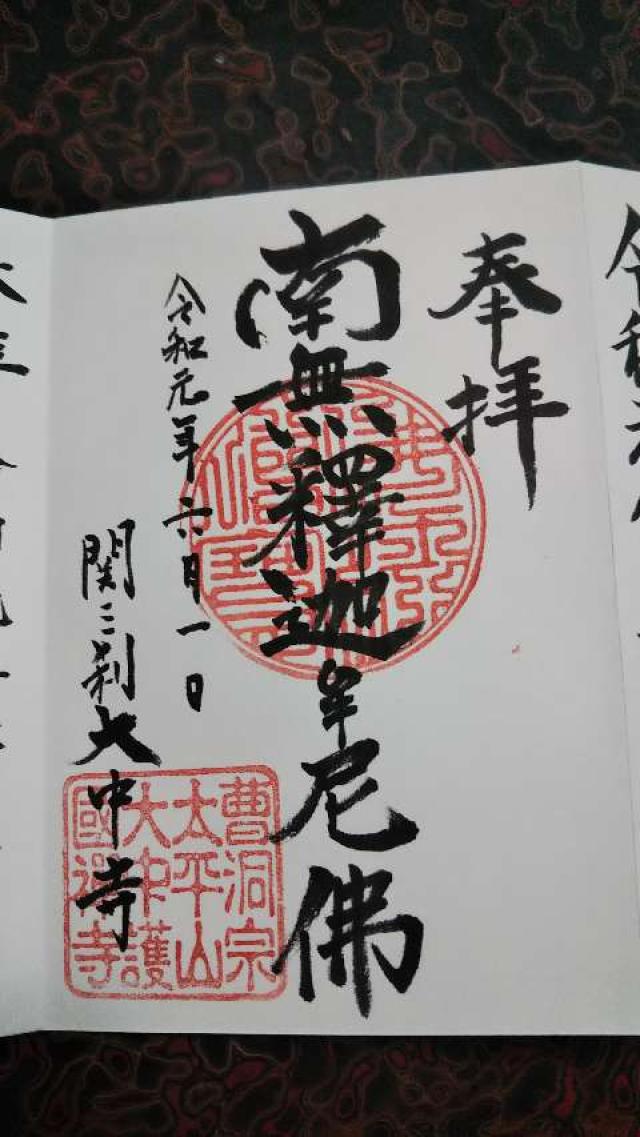 奉拝
南無釋迦牟尼佛
令和元年六月一日
関三刹大中寺
曹洞宗
太平山
大中護
國禅寺